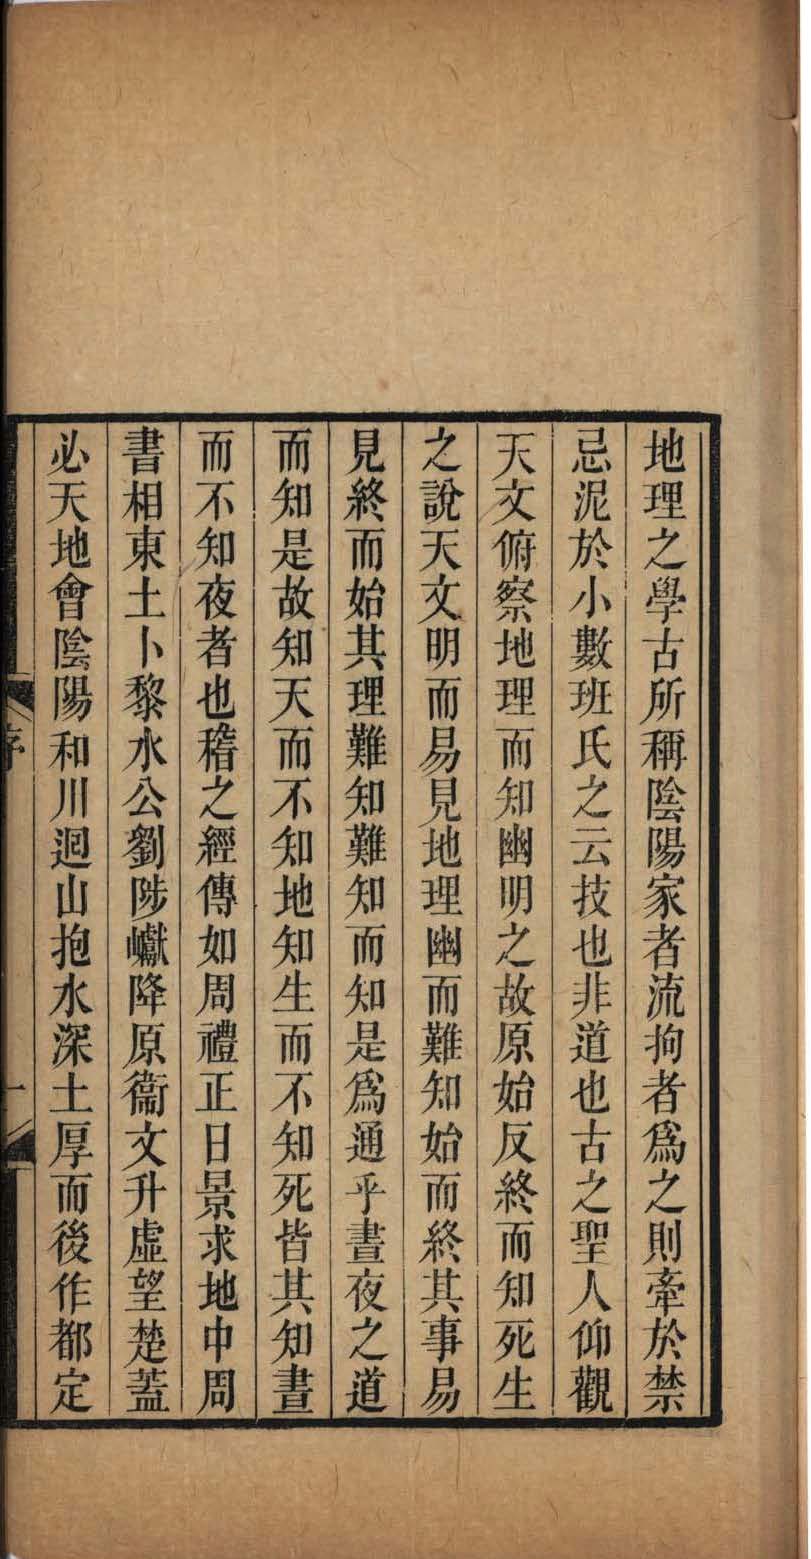 地理之學古所稱陰陽家者流拘者爲之則牽於禁
忌泥於小數班氏之云技也非道也古之聖人仰觀
天文俯察地理而知幽明之故原始反終而知死生
之說天文明而易見地理幽而難知始而終其事易
見終而始其理難知難知而知是爲通乎晝夜之道
而知是故知天而不知地知生而不知死皆其知晝
而不知夜者也稽之經傳如周禮正日景求地中周
書相東土卜黎水公劉陟巘降原衞文升虛望楚蓋
必天地會陰陽和川迴山抱水深土厚而後作都定
序
一